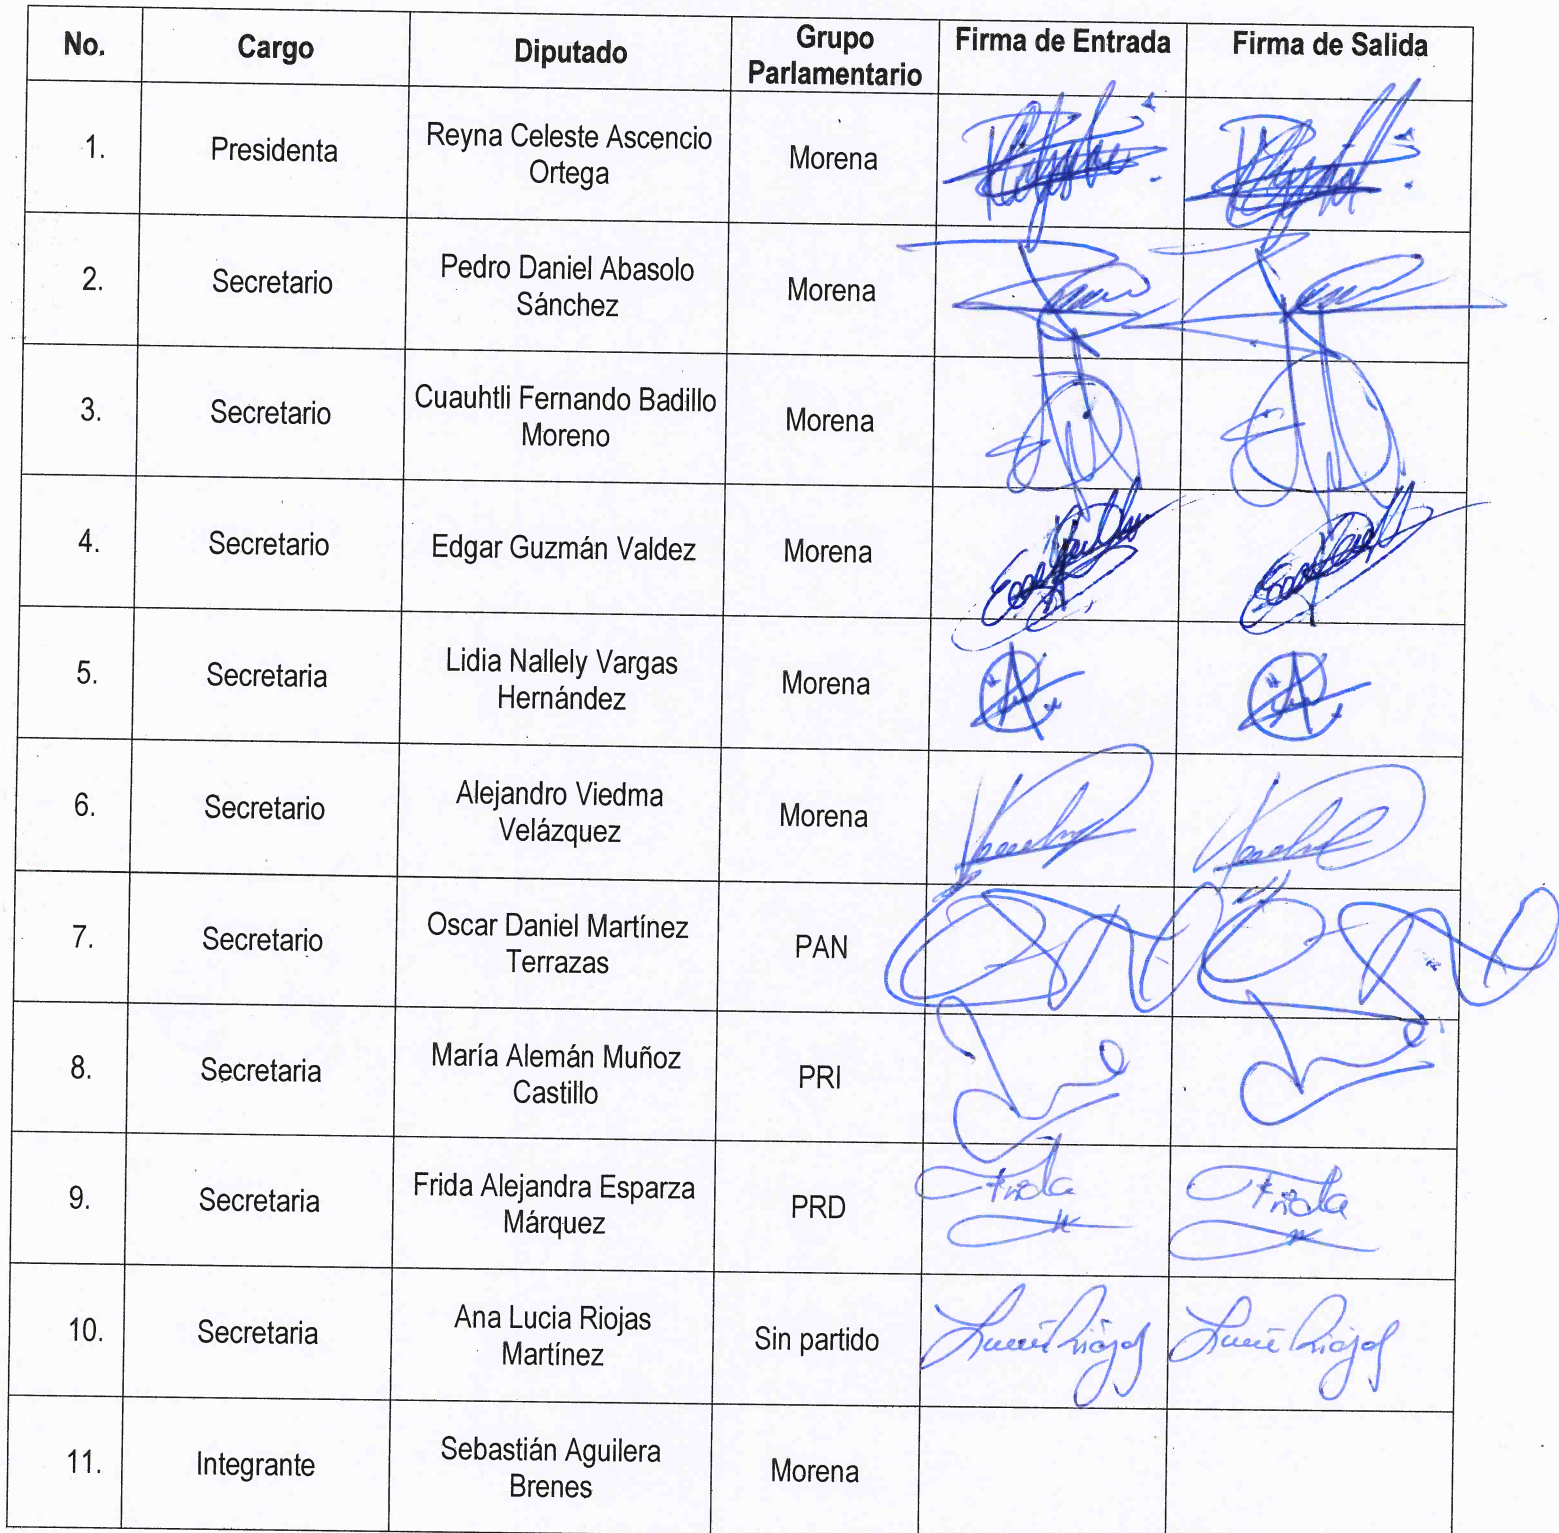 No. Cargo Diputado Grupo Parlamentario Firma de Entrada Firma de Salida
1. Presidenta Reyna Celeste Ascencio Ortega Morena
2. Secretario Pedro Daniel Abasolo Sánchez Morena
3. Secretario Cuauhtli Fernando Badillo Moreno Morena
4. Secretario Edgar Guzmán Valdez Morena
5. Secretaria Lidia Nallely Vargas Hernández Morena
6. Secretario Alejandro Viedma Velázquez Morena
7. Secretario Oscar Daniel Martínez Terrazas PAN
8. Secretaria María Alemán Muñoz Castillo PRI
9. Secretaria Frida Alejandra Esparza Márquez PRD Frida Frida
10. Secretaria Ana Lucia Riojas Martínez Sin partido Lucía Riojas Lucía Riojas
11. Integrante Sebastián Aguilera Brenes Morena